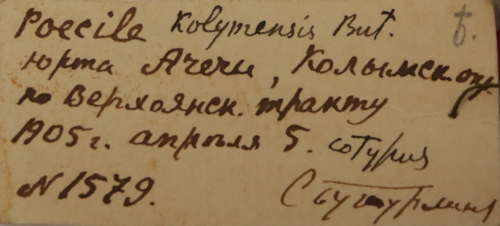 Poecile Kolymensis But. б.
юрта Ачечи, Колымск. окр.
по Верхоянск. тракту
1905 г. апрѣля 5.
N 1579. С. Бутурлинъ